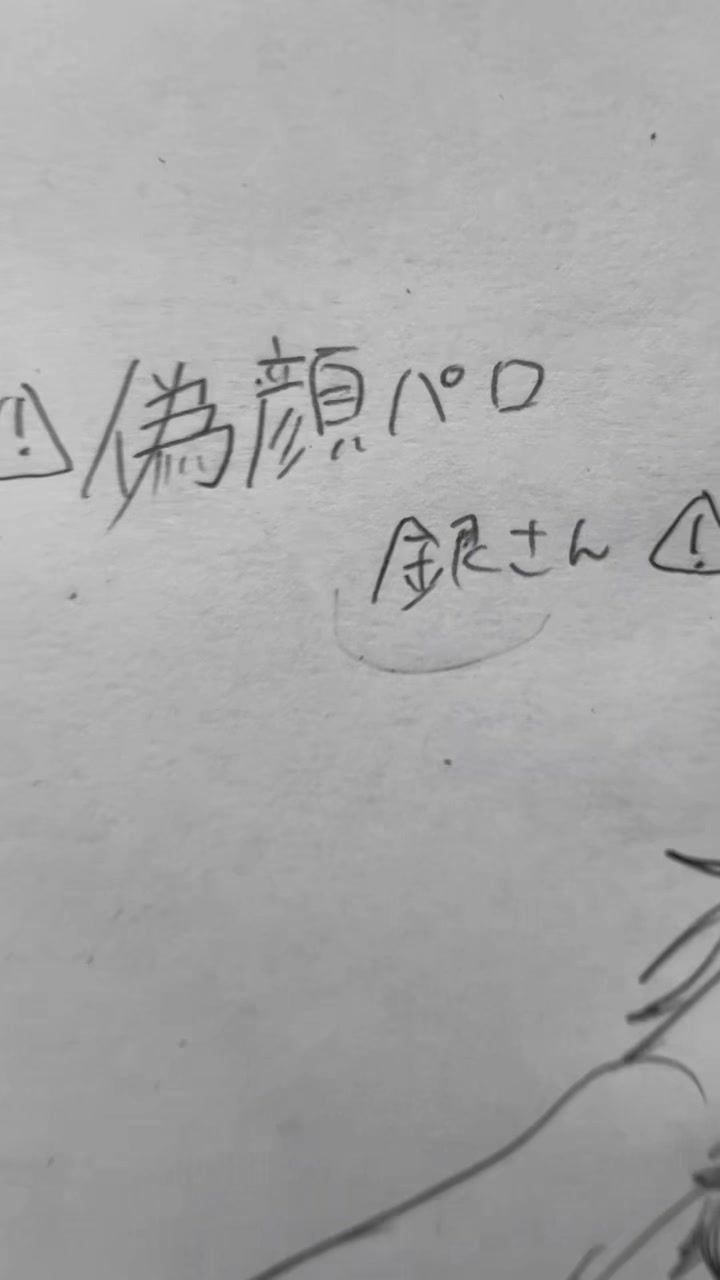 ⚠偽顔パロ
銀さん⚠